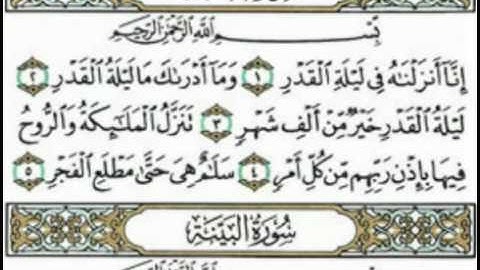 بِسْمِ اللَّهِ الرَّحْمَٰنِ الرَّحِيمِ
إِنَّا أَنزَلْنَٰهُ فِى لَيْلَةِ الْقَدْرِ ١ وَمَا أَدْرَىٰكَ مَا لَيْلَةُ الْقَدْرِ ٢
لَيْلَةُ الْقَدْرِ خَيْرٌ مِّنْ أَلْفِ شَهْرٍ ٣ تَنَزَّلُ الْمَلَٰٓئِكَةُ وَالرُّوحُ
فِيهَا بِإِذْنِ رَبِّهِم مِّن كُلِّ أَمْرٍ ٤ سَلَٰمٌ هِىَ حَتَّىٰ مَطْلَعِ الْفَجْرِ ٥
سُورَةُ الْبَيِّنَةِ